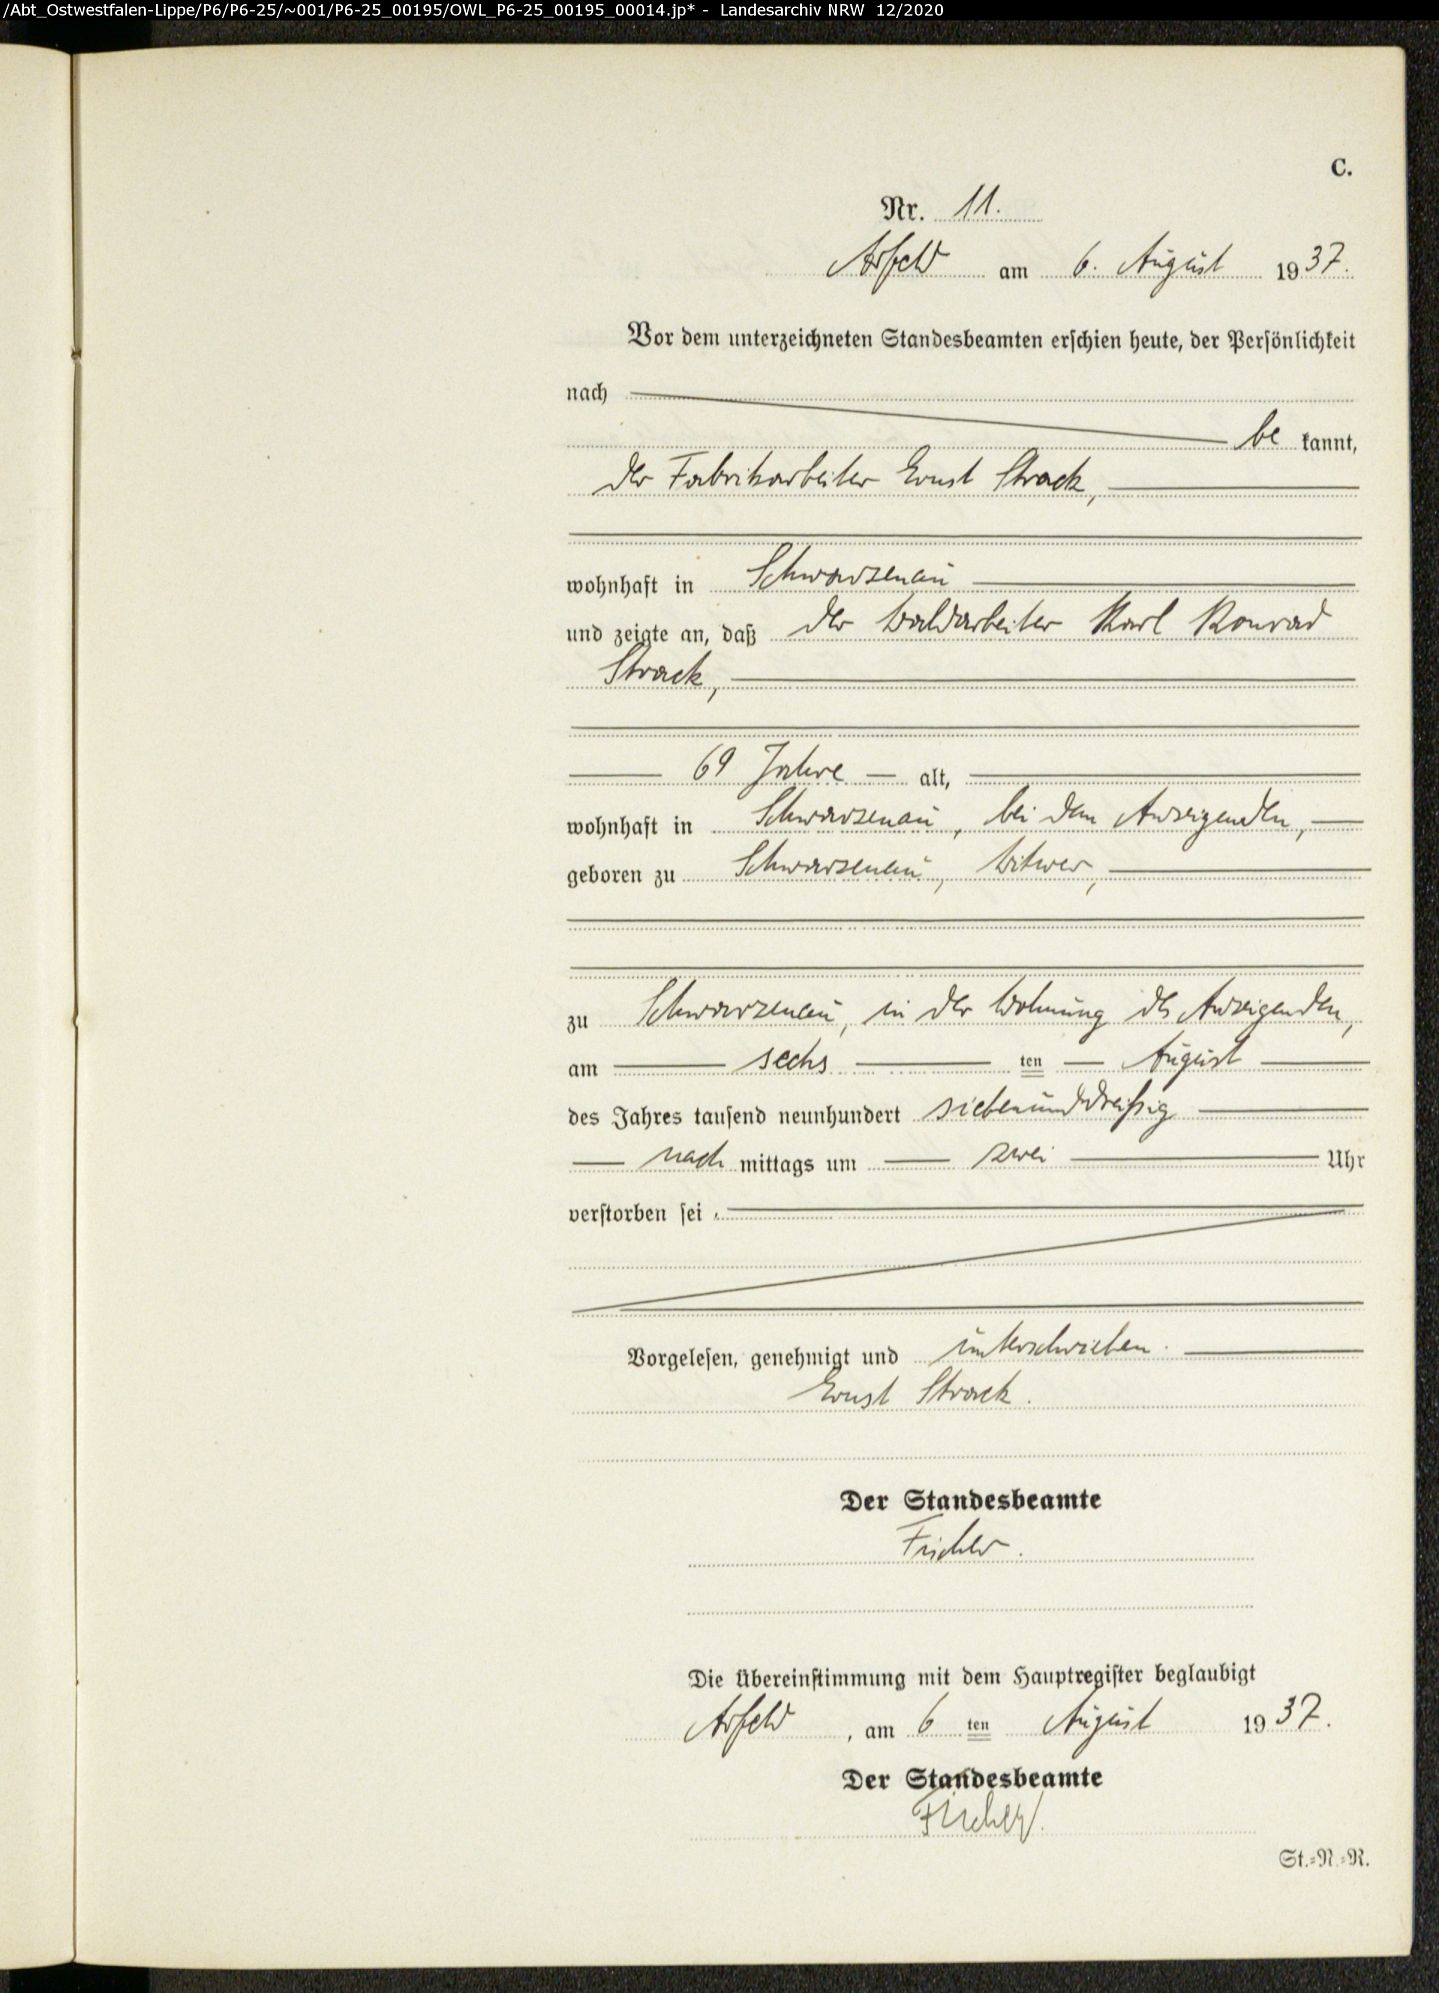 /Abt_Ostwestfalen-Lippe/P6/P6-25/~001/P6-25_00195/OWL_P6-25_00195_00014.jp* - Landesarchiv NRW 12/2020
C.
Nr. 11.
Arfeld am 6. August 1937.
Vor dem unterzeichneten Standesbeamten erschien heute, der Persönlichkeit
nach
be kannt,
der Fabrikarbeiter Ernst Strack,
wohnhaft in Schwarzenau
und zeigte an, daß der Waldarbeiter Karl Konrad
Strack,
69 Jahre alt,
wohnhaft in Schwarzenau, bei dem Anzeigenden,
geboren zu Schwarzenau, Witwer,
zu Schwarzenau, in der Wohnung des Anzeigenden,
am sechs ten August
des Jahres tausend neunhundert siebenunddreißig
nach mittags um zwei Uhr
verstorben sei.
Vorgelesen, genehmigt und unterschrieben.
Ernst Strack.
Der Standesbeamte
Fischer.
Die Übereinstimmung mit dem Hauptregister beglaubigt
Arfeld, am 6 ten August 1937.
Der Standesbeamte
Fischer.
St.=N.=R.